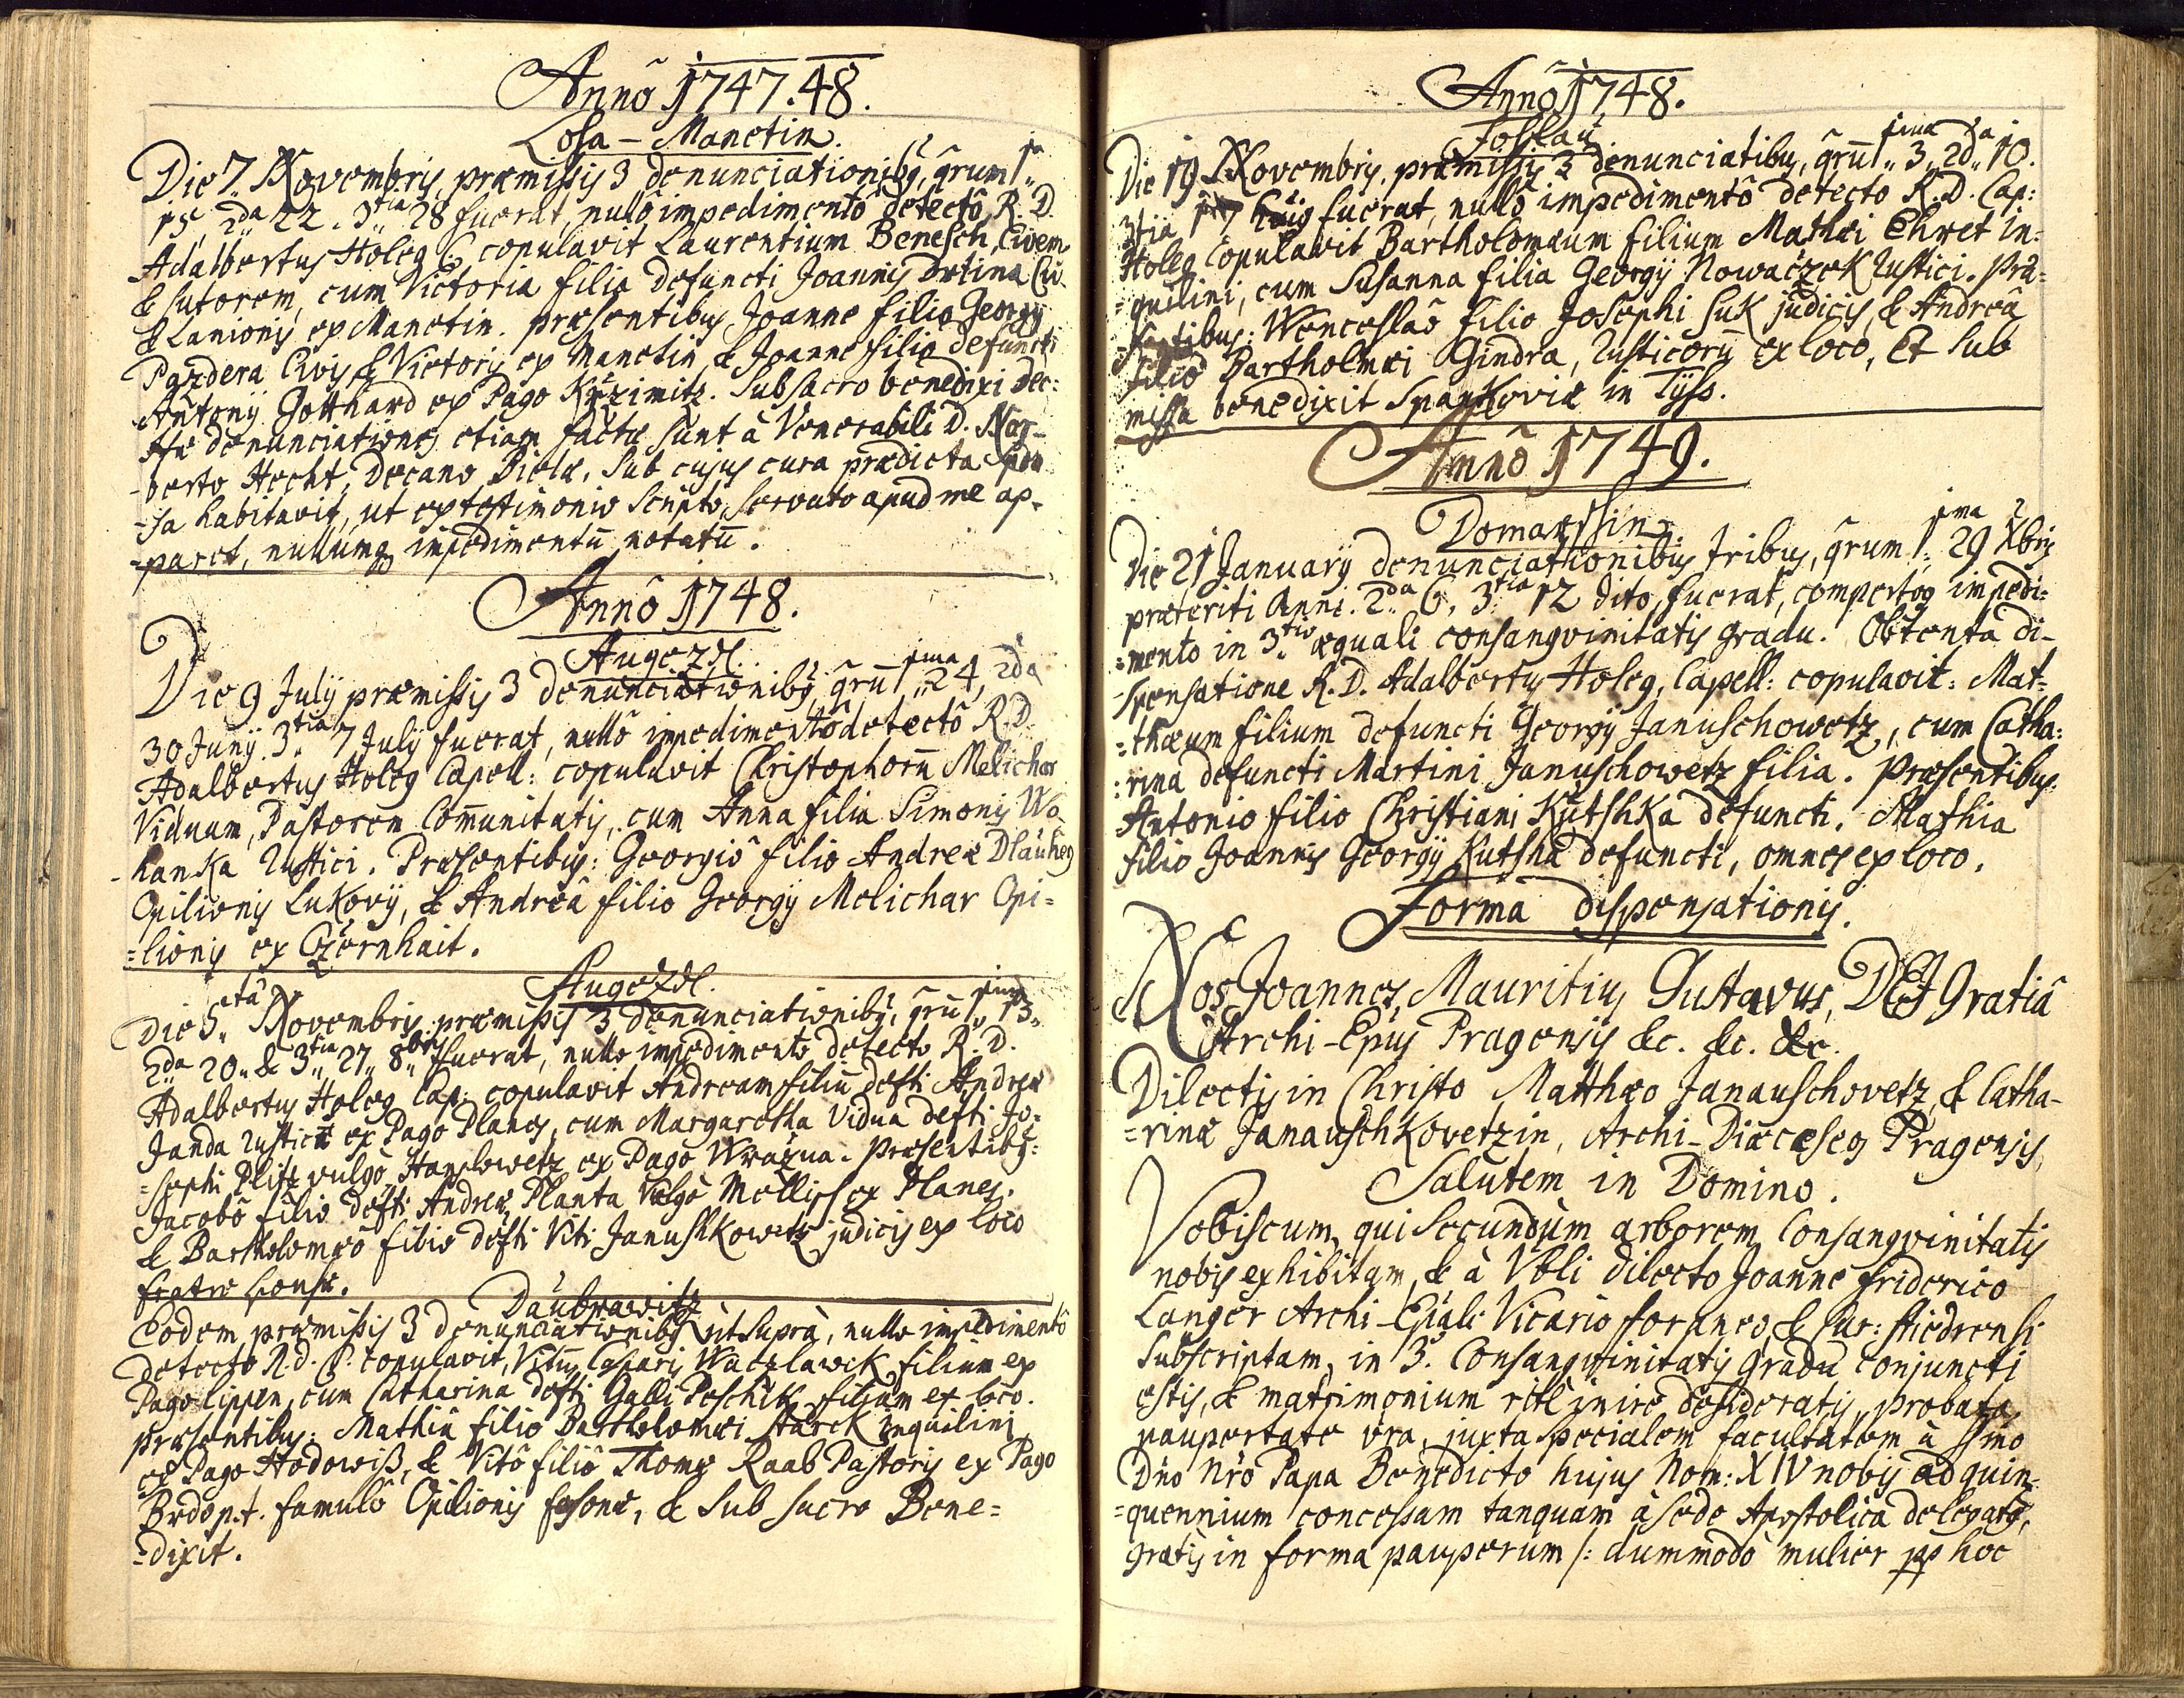 Annô 1747.48.
Losa – Manetin.
Die 7 Novembris, præmissis 3 denunciationibg, qrum 1ma
15, 2da 22. 3tia 28 fuerat, nullô impedimentô detectô R. D.
Adalbertus Holeg C: copulavit Laurentium Benesch, Civem
& sutorem, cum Victoria filia defuncti Joannis Drtina Civ.
& Lanionis ex Manetin. præsentibus Joanne filio Georgy
Pazdera Civis & Victoris ex Manetin, & Joanne filio defuncti
Antonij Gotthard ex Pago Krzimitz. Sub sacro benedixi. Dec:
denunciationes etiam factæ sunt à Venerabili D. Nor-
-berto Hecht, Decano Bielæ, sub cujus cura prædicta Spon
-sa habitavit, ut ex testimonio scripto, servato apud me ap-
-paret, nullumq impedimentū notatū.
Annô 1748.
Augezdl.
Die 9 Julij præmissis 3 denunciationibg, qrū 1ma 24, 2da
30 Junij. 3tia 7 Julij fuerat, nullô impedimentô detectô R. D.
Adalbertus Holeg Capell: copulavit Christophorū Melichar
Viduum, Pastorem Com̄unitatis, cum Anna filia Simonis Wo-
-hanka Rustici. Præsentibus: Georgiô filio Andreæ Dlauheg
Opilionis Lukovij, & Andreâ filio Georgij Melichar Opi=
=lionis ex Czernhait.
Augezdl.
Die 5tâ Novembris præmissis 3 denunciationibg, qrū 1ma 13,
2da 20 & 3tia 27 8bris fuerat, nullo impedimento detecto R. D.
Adalbertus Holeg Cap: copulavit Andream filiū defti Andreæ
Janda Rustici ex Pago Planes, cum Margaretha Vidua defti Jo=
=sephi Plitz vulgò Hanslowetz ex Pago Wrazna. Præsentibg:
Jacobô filio defti Andreæ Planta Vulgò Mellips ex Planes,
& Bartholomæô filio defti Viti Janushkowetz judicis ex loco
fratre sponsæ.
Daubrawitz
Eodem præmissis 3 denunciationibg ut supra, nullo impedimentô
detecto R. D. C. copulavit, Vitū Casparis Waczlawek filium ex
Pago Lippen, cum Catharina defti Galli Peschik filiam ex loco.
præsentibus: Mathia filio Bartholomæi Starek inquilini
ex Pago Hodowiß, & Vitô filiô Thomæ Raab Pastoris ex Pago
Brdo p.t. famulô Opilionis, & sub sacro Bene=
=dixit.
Annô 1748.
Die 19 Novembris. præmissis 3 denunciatibus, qrū 1ma 3, 2da 10.
3tia 17 fuerat, nullô impedimentô detecto R. D. Cap:
Holeg Copulavit Bartholomæum filium Mathæi Ehret in=
=quilini, cum Susanna filia Georgij Nowaczek Rustici. Præ=
=sentibus: Wenceslaô filio Josephi Suk judicis, & Andreâ
filiô Bartholmæi Gindra, Rusticorū ex loco, Et sub
missa benedixit Spankoviæ in Tyss.
Annô 1749.
Domaxssin.
Die 21 January denunciationibus Tribus, qrum 1ma 29 Xbris
præteriti Anni. 2da 6, 3tia 12 dito, fuerat, compertoq impedi=
=mento in 3tio æquali consangvinitatis gradu. Obtenta di-
-spensatione R. D. Adalbertus Holeg, Capell: copulavit: Mat=
=thæum filium defuncti Georgij Januschowetz, cum Catha:
:rina defuncti Martini Januschowetz filia. Præsentibus:
Antonio filio Christiani Kutshka defuncti. Mathia
filio Joannis Georgij Kutsha defuncti, omnes ex loco.
Forma dispensationis.
Nos Joannes Mauritius Gustavus, DEI Gratiâ
Archi-Epūs Pragensis &c. &c. &c.
Dilectis in Christo Matthæo Janauschovetz, & Catha-
=rinæ Janauschkovetzin, Archi-Diæceseos Pragensis
Salutem in Domino.
Vobiscum, qui secundùm arborem Consangvinitatis
nobis exhibitam, & à Vbli dilecto Joanne Friderico
Langer Archi-Epāli Vicario foraneo, & Cur: Stiedrensi
subscriptam, in 3. Consangvinitatis Gradu conjuncti
estis, & matrimonium ritè inire desideratis, probata
paupertate vra, juxta specialem facultatem à Ssmo
Dno Nrô Papa Benedicto hujus Nom: XIV nobis ad quin-
=quennium concessam tanquam à sede Apostolica delegatô,
gratis in forma pauperum /: dummodò mulier pp hoc